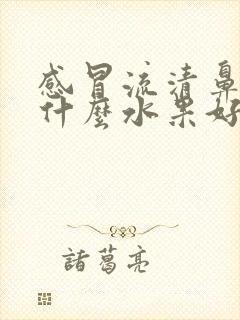 感冒流清鼻
什麼水果好
諸葛亮